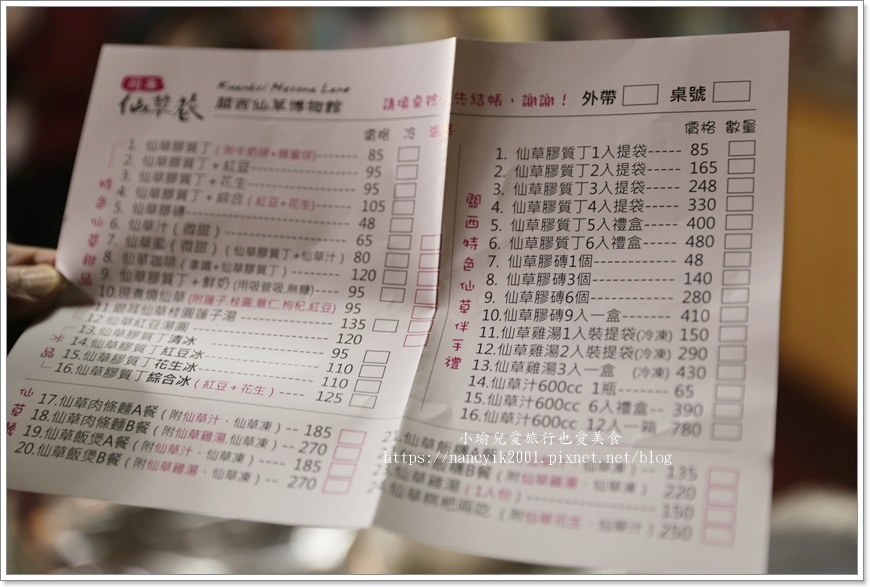 關西
仙草巷
關西仙草博物館
請填桌號 先結帳，謝謝！ 外帶 桌號
價格 冷
特色仙草甜品
1. 仙草膠質丁(附牛奶球+蜂蜜球)------- 85
2. 仙草膠質丁+紅豆------ 95
3. 仙草膠質丁+花生------ 95
4. 仙草膠質丁+綜合(紅豆+花生)------ 105
5. 仙草膠磚------ 48
6. 仙草汁(微甜)------ 65
7. 仙草蜜(微甜)(仙草膠質丁+仙草汁) 80
8. 仙草咖啡(拿鐵+仙草膠質丁)------ 120
9. 仙草膠質丁+鮮奶(用吸管吸,無糖)--- 95
10.現煮燒仙草(附蓮子,桂圓,薏仁,枸杞,紅豆) 95
11.銀耳仙草桂圓蓮子湯------ 135
12.仙草紅豆湯圓------ 120
冰品
13.仙草膠質丁清冰------ 95
14.仙草膠質丁紅豆冰------ 110
15.仙草膠質丁花生冰------ 110
16.仙草膠質丁綜合冰(紅豆+花生)---- 125
仙草餐
17.仙草肉條麵A餐(附仙草汁、仙草凍)--- 185
18.仙草肉條麵B餐(附仙草雞湯,仙草凍)-- 270
19.仙草飯煲A餐(附仙草汁、仙草凍)---- 185
20.仙草飯煲B餐(附仙草雞湯、仙草凍)-- 270
價格 數量
關西特色仙草伴手禮
1. 仙草膠質丁1入提袋----- 85
2. 仙草膠質丁2入提袋----- 165
3. 仙草膠質丁3入提袋----- 248
4. 仙草膠質丁4入提袋----- 330
5. 仙草膠質丁5入禮盒----- 400
6. 仙草膠質丁6入禮盒----- 480
7. 仙草膠磚1個------ 48
8. 仙草膠磚3個------ 140
9. 仙草膠磚6個------ 280
10.仙草膠磚9入一盒------- 410
11.仙草雞湯1入裝提袋(冷凍) 150
12.仙草雞湯2入裝提袋(冷凍) 290
13.仙草雞湯3入一盒 (冷凍) 430
14.仙草汁600cc 1瓶------ 65
15.仙草汁600cc 6入禮盒-- 390
16.仙草汁600cc 12入一箱 780
仙草飯
135
B餐(附仙草雞湯、仙草凍) 220
仙草雞湯(1人份)------ 150
24.仙草粿粑兩吃(附仙草花生、仙草汁) 290
小瑜兒愛旅行也愛美食
https://nancyik2001.pixnet.net/blog